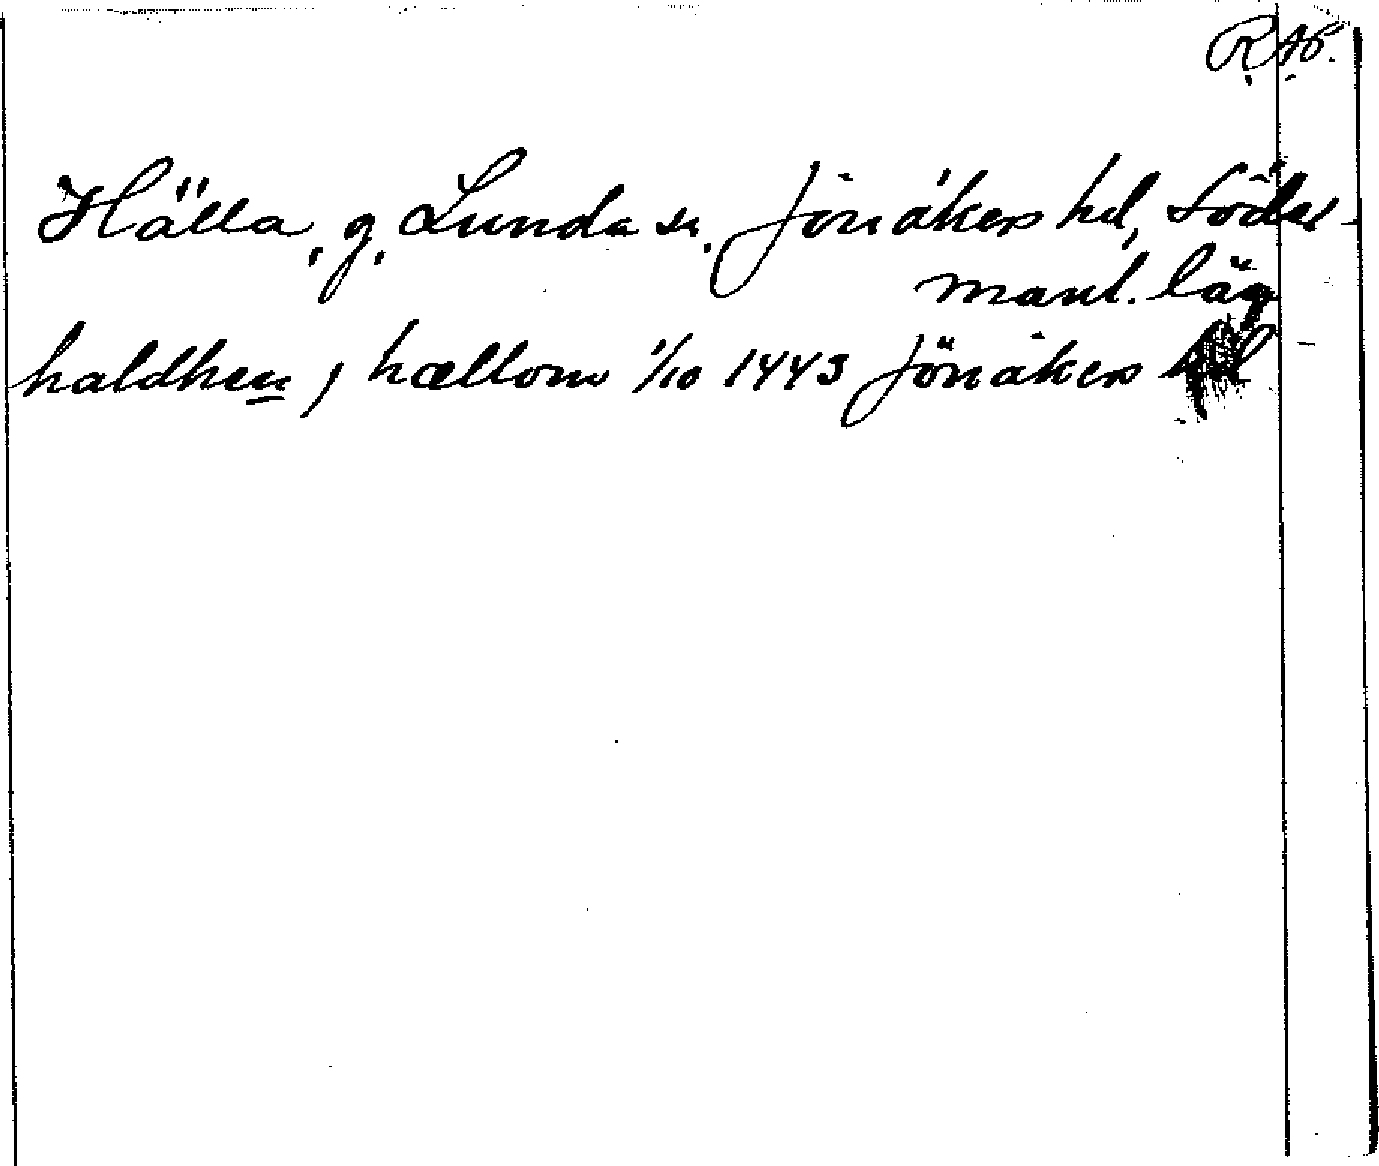 RAP.
Hälla, g, Lunda sn. Jönåkers hd, Söder-
manl. län
haldhen j hællom 1/10 1443 Jönåkers hd